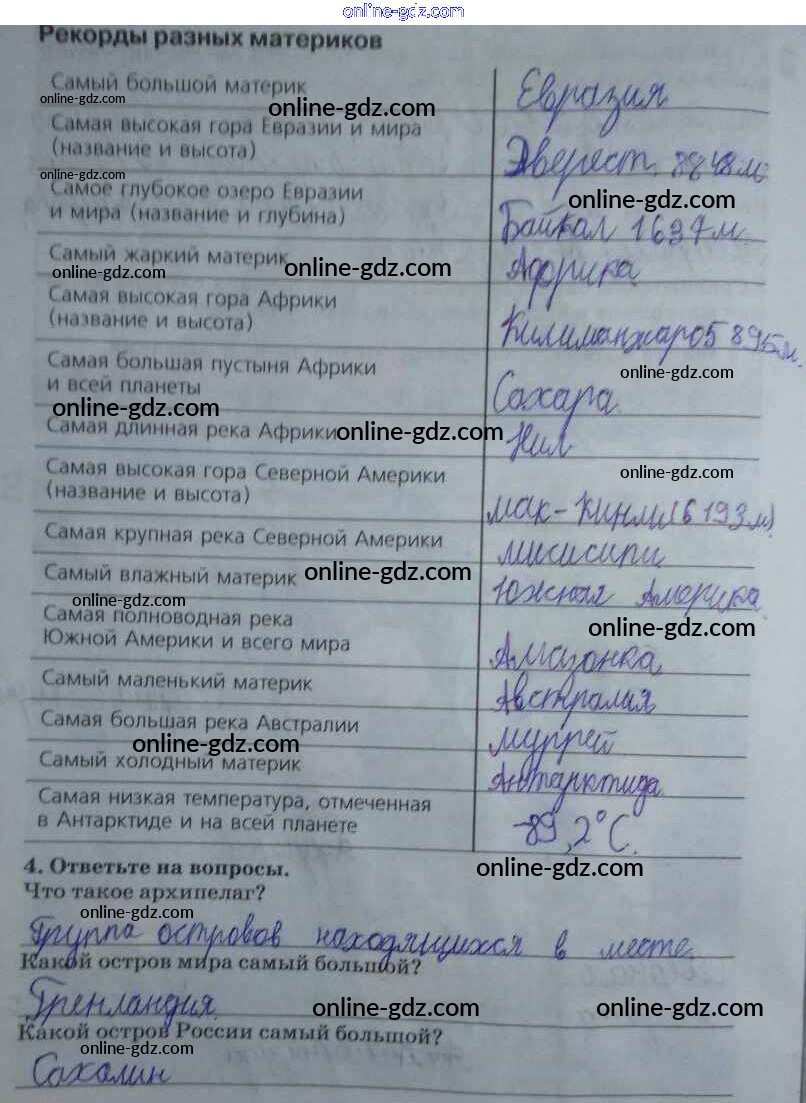 online-gdz.com
Рекорды разных материков
Самый большой материк
Евразия
online-gdz.com
online-gdz.com
Самая высокая гора Евразии и мира
(название и высота)
Эверест, 8848м.
online-gdz.com
Самое глубокое озеро Евразии
и мира (название и глубина)
online-gdz.com
Байкал 1637м.
Самый жаркий материк
Африка
online-gdz.com
online-gdz.com
Самая высокая гора Африки
(название и высота)
Килиманжаро5895м.
Самая большая пустыня Африки
и всей планеты
online-gdz.com
Сахара.
online-gdz.com
Самая длинная река Африки
online-gdz.com
Нил
Самая высокая гора Северной Америки
(название и высота)
online-gdz.com
мак-кинли(6193м).
Самая крупная река Северной Америки
мисисипи
Самый влажный материк
online-gdz.com
Южная Америка.
online-gdz.com
Самая полноводная река
Южной Америки и всего мира
online-gdz.com
Амазонка
Самый маленький материк
Австралия
Самая большая река Австралии
муррей
online-gdz.com
Самый холодный материк
Антарктида.
Самая низкая температура, отмеченная
в Антарктиде и на всей планете
-89,2°С.
4. Ответьте на вопросы.
online-gdz.com
Что такое архипелаг?
online-gdz.com
Группа островов находящихся в месте.
Какой остров мира самый большой?
Гренландия.
online-gdz.com
online-gdz.com
Какой остров России самый большой?
online-gdz.com
Сахалин